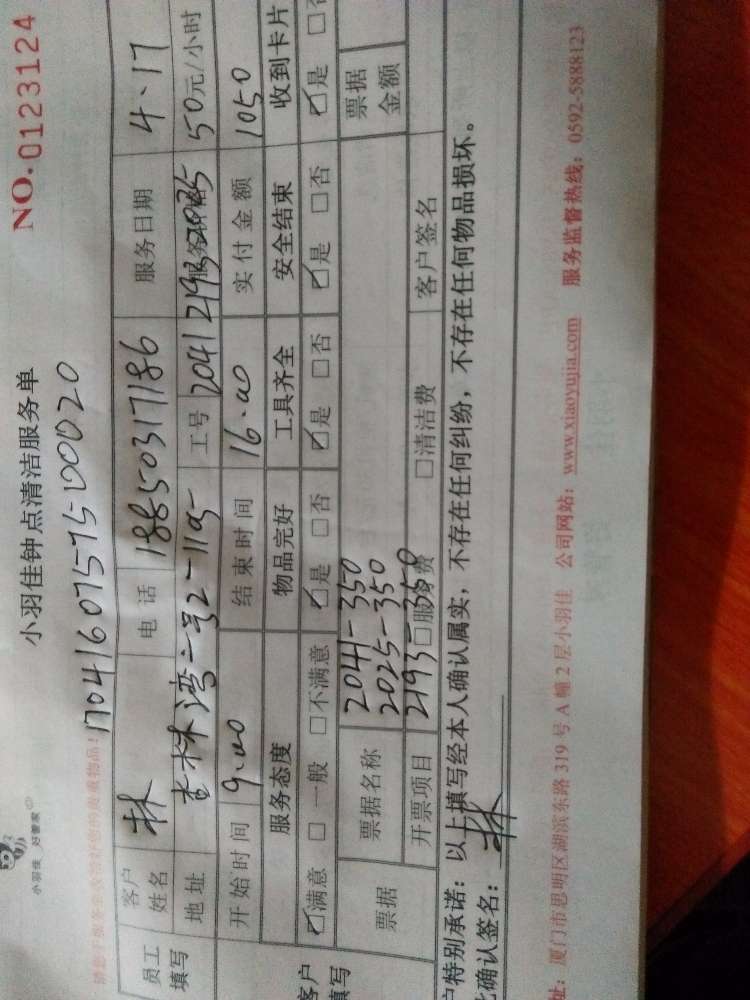 小羽佳 好管家
小羽佳钟点清洁服务单
NO.0123124
1704160757500020
员工填写
客户姓名 林 电话 18850317186 服务日期 4.17
地址 工号 2041 2193 2025 50元/小时
开始时间 9.00 结束时间 16.00 实付金额 1050
服务态度 物品完好 工具齐全 安全结束 收到卡片
☑满意 □一般 □不满意 ☑是 □否 ☑是 □否 ☑是 □否 ☑是
票据 票据名称 2041-350 票据金额
2025-350
开票项目 2193-350 □服务费 □清洁费 客户签名
户特别承诺：以上填写经本人确认属实，不存在任何纠纷，不存在任何物品损坏。
此确认签名：林
址：厦门市思明区湖滨东路 319 号 A 幢 2 层小羽佳 公司网站：www.xiaoyujia.com 服务监督热线：0592-5888123